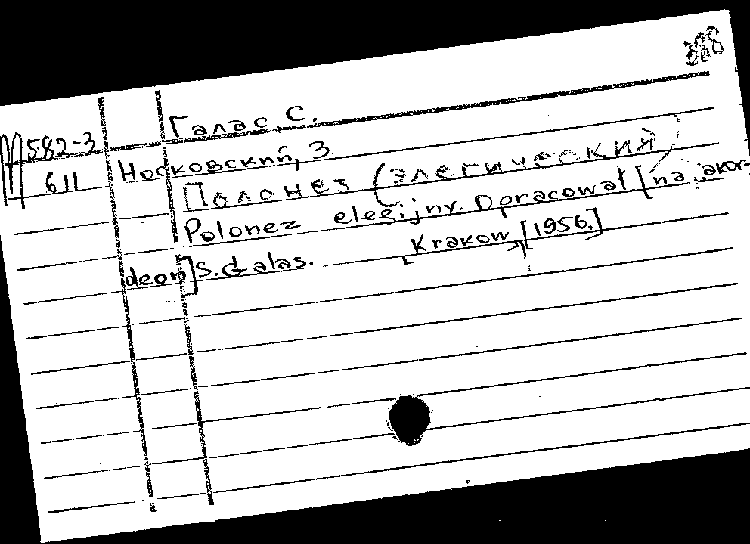 Галас, С.
М 582-3
611
Носковский, З
Полонез (элегический)
Polonez elegijny. Opracował [na akor-
deon] S. Galas. Krakow, [1956.]